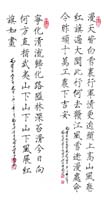 漫天皆白雪裏行軍情更迫頭上高山風卷
紅旗過大關此行何去贛江風雪迷漫處命
令昨頒十萬工農下吉安
寧化清流歸化路隘林深苔滑今日向
何方直指武夷山下山下山下風展紅
旗如畫